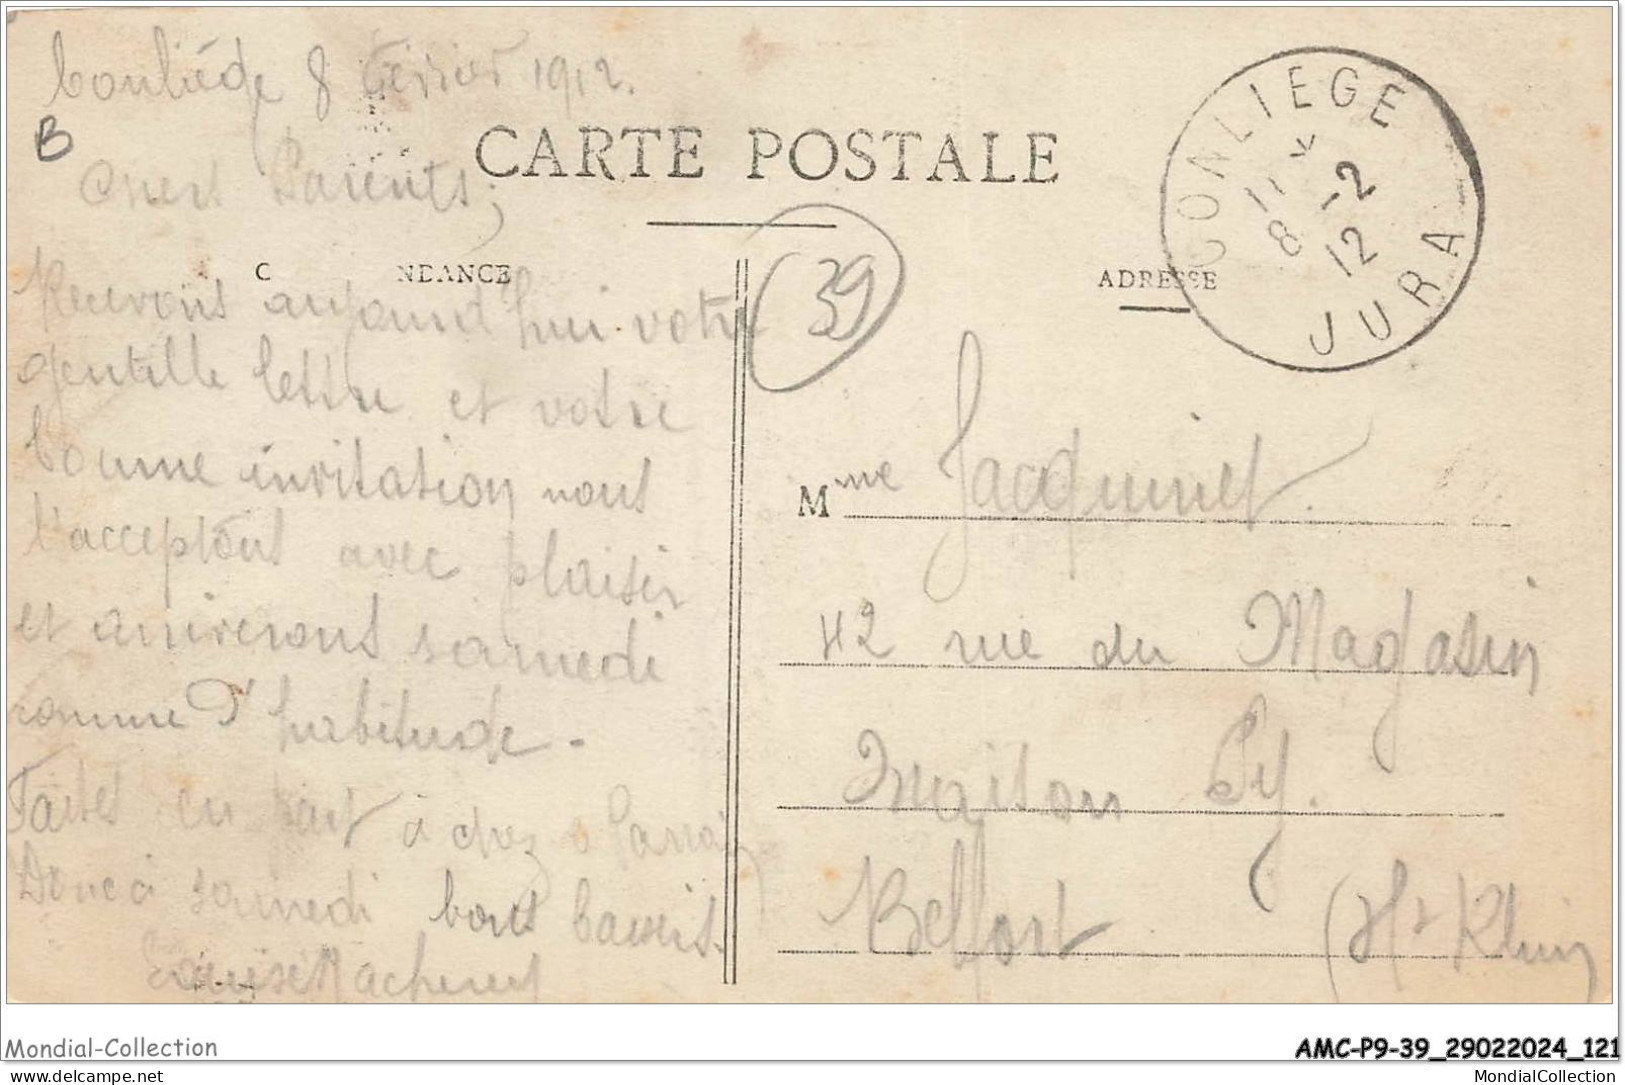 Conliége 8 Février 1912.
B
Chers Parents,
CARTE POSTALE
CONLIEGE
11 *
8 -2
12
JURA
C NDANCE
ADRESSE
39
Recevons aujourd'hui votre
gentille lettre et votre
bonne invitation nous
l'acceptons avec plaisir
et arriverons samedi
comme d'habitude.
Faites en part à chez
Donc à samedi bons baisers.
Louise Macherey
Mme Jacquinet.
42 rue du Magasin
maison Py.
Belfort (Ht Rhin)
Mondial-Collection
AMC-P9-39_29022024_121
www.delcampe.net
MondialCollection